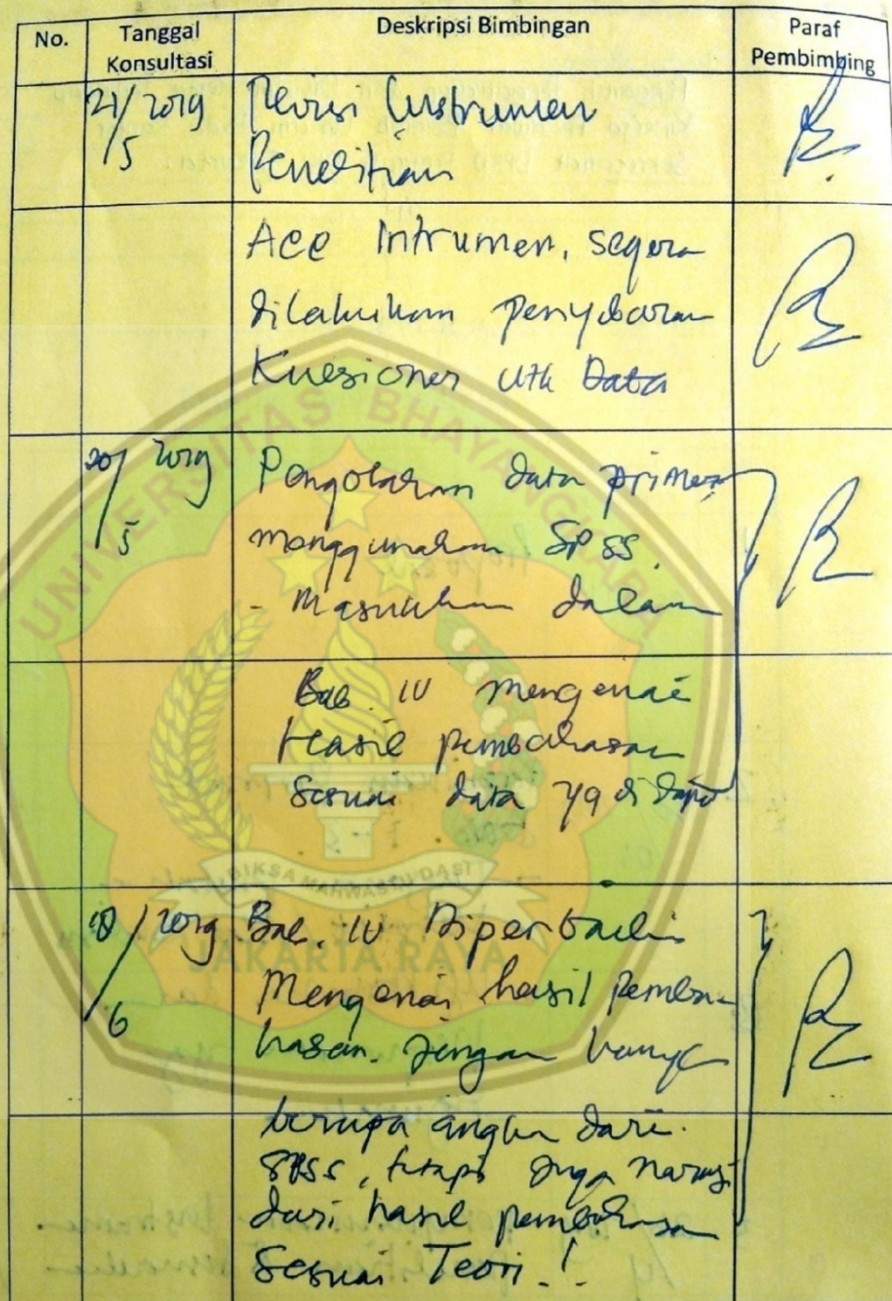 No.
Tanggal Konsultasi
Deskripsi Bimbingan
Paraf Pembimbing
21/5 2019
Revisi Instrumen
Penelitian
Acc Intrumen, segera
dilakukan penyebaran
Kuesioner utk Data
20/5 2019
Pengolahan data primer
menggunakan SPSS
- Masukkan dalam
Bab. IV mengenai
Hasil pembahasan
Sesuai data yg di dapat
18/6 2019
Bab. IV Diperbaiki
Mengenai hasil pemba-
hasan. Jangan hanya
berupa angka dari
SPSS, tetapi juga narasi
dari hasil pembahasan
Sesuai Teori.!
UNIVERSITAS BHAYANGKARA
JAKARTA RAYA